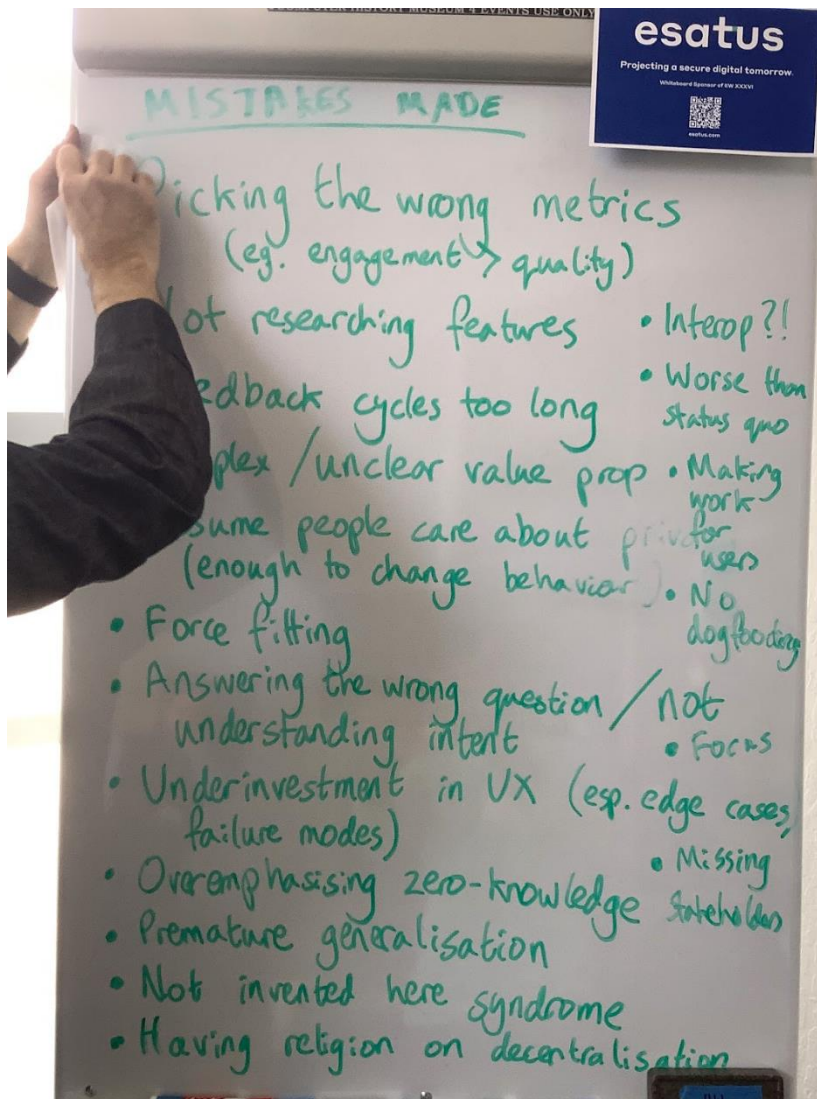 COMPUTER HISTORY MUSEUM 4 EVENTS USE ONLY
esatus
Projecting a secure digital tomorrow.
Whiteboard Sponsor of IIW XXXVI
esatus.com
MISTAKES MADE
Picking the wrong metrics
(eg. engagement > quality)
ot researching features
edback cycles too long
plex / unclear value prop
sume people care about
(enough to change behavior)
• Force fitting
• Answering the wrong question / not
understanding intent
• Underinvestment in UX (esp. edge cases,
failure modes)
• Overemphasising zero-knowledge
• Premature generalisation
• Not invented here syndrome
• Having religion on decentralisation
• Interop?!
• Worse than
status quo
• Making
work
for
users
• No
dogfooding
• Focus
• Missing
stakeholders